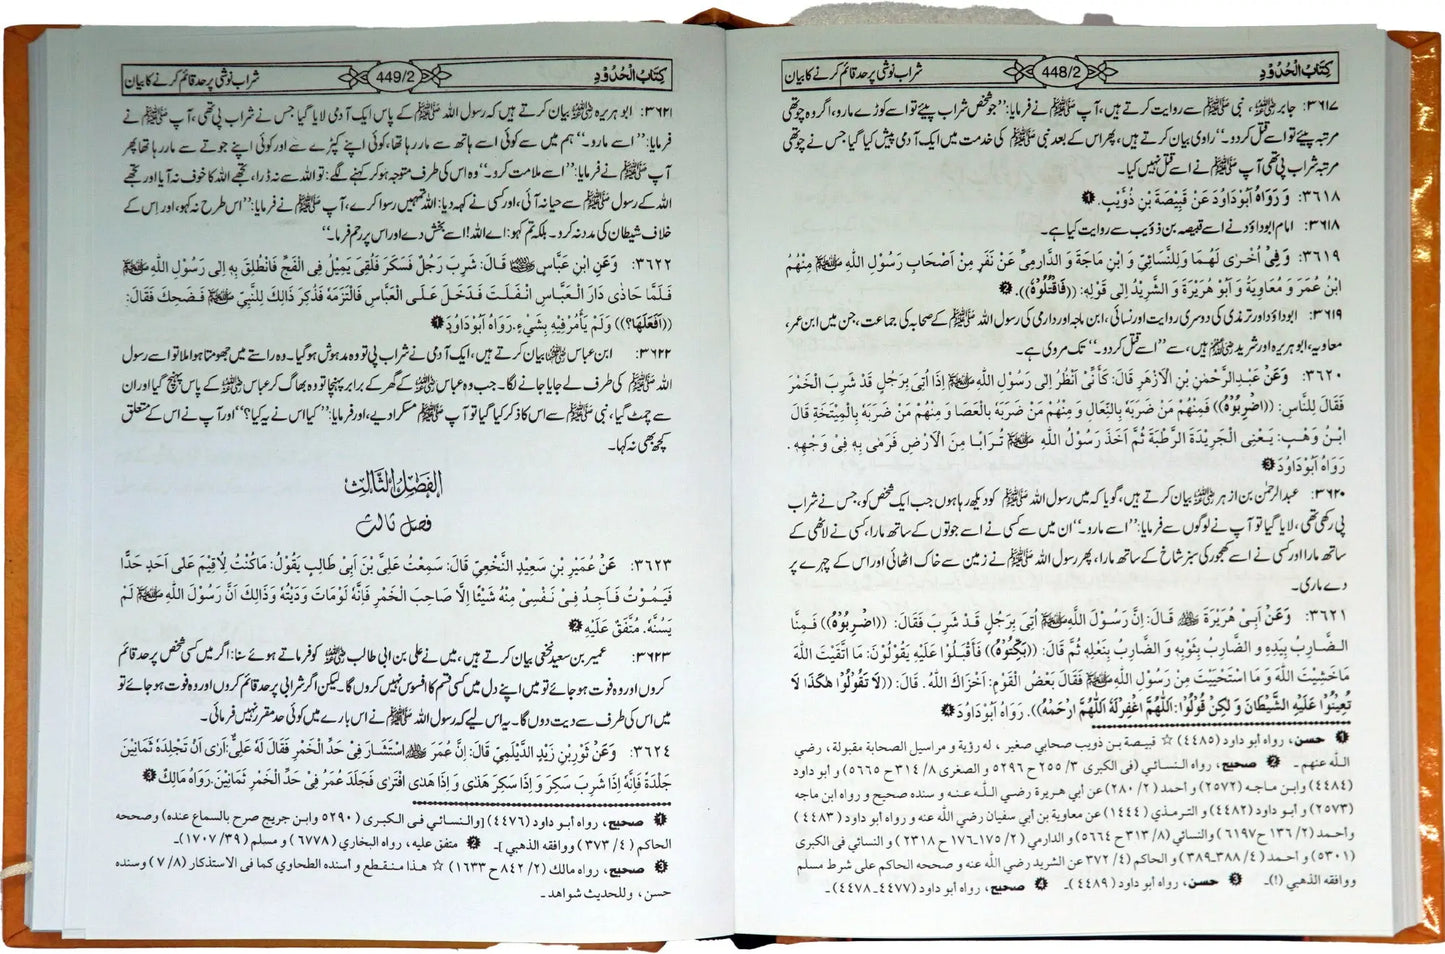 کِتَابُ الْحُدُوْدِ
448/2
شراب نوشی پر حد قائم کرنے کا بیان
۳۶۱۷: جابر رضی اللہ عنہ، نبی ﷺ سے روایت کرتے ہیں، آپ ﷺ نے فرمایا: ’’جو شخص شراب پیئے تو اسے کوڑے مارو، اگر وہ چوتھی
مرتبہ پیئے تو اسے قتل کر دو۔‘‘ راوی بیان کرتے ہیں، پھر اس کے بعد نبی ﷺ کی خدمت میں ایک آدمی پیش کیا گیا جس نے چوتھی
مرتبہ شراب پی تھی آپ ﷺ نے اسے قتل نہیں کیا۔
۳۶۱۸: وَ رَوَاهُ اَبُوْدَاوُدَ عَنْ قَبِيْصَةَ بْنِ ذُؤَيْبٍ. ❶
۳۶۱۸: امام ابوداؤد نے اسے قبیصہ بن ذؤیب سے روایت کیا ہے۔
۳۶۱۹: وَ فِيْ اُخْرٰى لَهُمَا وَلِلنَّسَائِيِّ وَ ابْنِ مَاجَةَ وَ الدَّارِمِيِّ عَنْ نَفَرٍ مِنْ اَصْحَابِ رَسُوْلِ اللّٰهِ ﷺ مِنْهُمْ
ابْنُ عُمَرَ وَ مُعَاوِيَةُ وَ اَبُوْ هُرَيْرَةَ وَ الشَّرِيْدُ اِلٰى قَوْلِهٖ: ((فَاقْتُلُوْهُ)). ❷
۳۶۱۹: ابوداؤد اور ترمذی کی دوسری روایت اور نسائی، ابن ماجہ اور دارمی کی رسول اللہ ﷺ کے صحابہ کی جماعت، جن میں ابن عمر،
معاویہ، ابو ہریرہ اور شرید رضی اللہ عنہم ہیں، سے ’’اسے قتل کر دو۔‘‘ تک مروی ہے۔
۳۶۲۰: وَعَنْ عَبْدِالرَّحْمٰنِ بْنِ الْاَزْهَرِ قَالَ: كَاَنِّيْ اَنْظُرُ اِلٰى رَسُوْلِ اللّٰهِ ﷺ اِذَا اُتِيَ بِرَجُلٍ قَدْ شَرِبَ الْخَمْرَ
فَقَالَ لِلنَّاسِ: ((اضْرِبُوْهُ)) فَمِنْهُمْ مَنْ ضَرَبَهٗ بِالنِّعَالِ وَ مِنْهُمْ مَنْ ضَرَبَهٗ بِالْعَصَا وَ مِنْهُمْ مَنْ ضَرَبَهٗ بِالْمِيْتَخَةِ قَالَ
ابْنُ وَهْبٍ: يَعْنِى الْجَرِيْدَةَ الرَّطْبَةَ ثُمَّ اَخَذَ رَسُوْلُ اللّٰهِ ﷺ تُرَابًا مِنَ الْاَرْضِ فَرَمٰى بِهٖ فِيْ وَجْهِهٖ.
رَوَاهُ اَبُوْدَاوُدَ ❸
۳۶۲۰: عبدالرحمن بن ازہر رضی اللہ عنہ بیان کرتے ہیں، گویا کہ میں رسول اللہ ﷺ کو دیکھ رہا ہوں جب ایک شخص کو، جس نے شراب
پی رکھی تھی، لایا گیا تو آپ نے لوگوں سے فرمایا: ’’اسے مارو۔‘‘ ان میں سے کسی نے اسے جوتوں کے ساتھ مارا، کسی نے لاٹھی کے
ساتھ مارا اور کسی نے اسے کھجور کی سبز شاخ کے ساتھ مارا، پھر رسول اللہ ﷺ نے زمین سے خاک اٹھائی اور اس کے چہرے پر
دے ماری۔
۳۶۲۱: وَعَنْ اَبِيْ هُرَيْرَةَ رضی اللہ عنہ قَالَ: اِنَّ رَسُوْلَ اللّٰهِ ﷺ اُتِيَ بِرَجُلٍ قَدْ شَرِبَ فَقَالَ: ((اضْرِبُوْهُ)) فَمِنَّا
الضَّارِبُ بِيَدِهٖ وَ الضَّارِبُ بِثَوْبِهٖ وَ الضَّارِبُ بِنَعْلِهٖ ثُمَّ قَالَ: ((بَكِّتُوْهُ)) فَاَقْبَلُوْا عَلَيْهِ يَقُوْلُوْنَ: مَا اتَّقَيْتَ اللّٰهَ
مَاخَشِيْتَ اللّٰهَ وَ مَا اسْتَحْيَيْتَ مِنْ رَسُوْلِ اللّٰهِ ﷺ فَقَالَ بَعْضُ الْقَوْمِ: اَخْزَاكَ اللّٰهُ. قَالَ: ((لَا تَقُوْلُوْا هٰكَذَا لَا
تُعِيْنُوْا عَلَيْهِ الشَّيْطَانَ وَ لٰكِنْ قُوْلُوْا: اَللّٰهُمَّ اغْفِرْلَهٗ اَللّٰهُمَّ ارْحَمْهُ)). رَوَاهُ اَبُوْدَاوُدَ ❹
❶ حسن، رواه أبو داود (٤٤٨٥) ☆ قبيصة بن ذويب صحابي صغير، له رؤية و مراسيل الصحابة مقبولة، رضي
الله عنهم۔ ❷ صحيح، رواه النسائي (فى الكبرى ٣/ ٢٥٥ ح ٥٢٩٦ و الصغرى ٨/ ٣١٤ ح ٥٦٦٥) و أبو داود
(٤٤٨٤) وابن ماجه (٢٥٧٢) و أحمد (٢/ ٢٨٠) عن أبي هريرة رضي الله عنه و سنده صحيح و رواه ابن ماجه
(٢٥٧٣) و أبو داود (٤٤٨٢) و الترمذي (١٤٤٤) عن معاوية بن أبي سفيان رضي الله عنه و رواه أبو داود (٤٤٨٣)
وأحمد (٢/ ١٣٦ ح ٦١٩٧) والنسائي (٨/ ٣١٣ ح ٥٦٦٤) و الدارمي (٢/ ١٧٥-١٧٦ ح ٢٣١٨) و النسائي فى الكبرى
(٥٣٠١) و أحمد (٤/ ٣٨٨-٣٨٩) و الحاكم (٤/ ٣٧٢) عن الشريد رضي الله عنه و صححه الحاكم على شرط مسلم
ووافقه الذهبي (!)۔ ❸ حسن، رواه أبو داود (٤٤٨٩)۔ ❹ صحيح، رواه أبو داود (٤٤٧٧-٤٤٧٨)۔
کِتَابُ الْحُدُوْدِ
449/2
شراب نوشی پر حد قائم کرنے کا بیان
۳۶۲۱: ابو ہریرہ رضی اللہ عنہ بیان کرتے ہیں کہ رسول اللہ ﷺ کے پاس ایک آدمی لایا گیا جس نے شراب پی تھی، آپ ﷺ نے
فرمایا: ’’اسے مارو۔‘‘ ہم میں سے کوئی اسے ہاتھ سے مار رہا تھا، کوئی اپنے کپڑے سے اور کوئی اپنے جوتے سے مار رہا تھا پھر
آپ ﷺ نے فرمایا: ’’اسے ملامت کرو۔‘‘ وہ اس کی طرف متوجہ ہو کر کہنے لگے: تو اللہ سے نہ ڈرا، تجھے اللہ کا خوف نہ آیا اور تجھے
اللہ کے رسول ﷺ سے حیا نہ آئی، اور کسی نے کہہ دیا: اللہ تمہیں رسوا کرے، آپ ﷺ نے فرمایا: ’’اس طرح نہ کہو، اور اس کے
خلاف شیطان کی مدد نہ کرو۔ بلکہ تم کہو: اے اللہ! اسے بخش دے اور اس پر رحم فرما۔‘‘
۳۶۲۲: وَعَنِ ابْنِ عَبَّاسٍ رضی اللہ عنہما قَالَ: شَرِبَ رَجُلٌ فَسَكَرَ فَلُقِيَ يَمِيْلُ فِى الْفَجِّ فَانْطُلِقَ بِهٖ اِلٰى رَسُوْلِ اللّٰهِ ﷺ
فَلَمَّا حَاذٰى دَارَ الْعَبَّاسِ انْفَلَتَ فَدَخَلَ عَلَى الْعَبَّاسِ فَالْتَزَمَهٗ فَذُكِرَ ذَالِكَ لِلنَّبِيِّ ﷺ فَضَحِكَ فَقَالَ:
((اَفَعَلَهَا؟)) وَلَمْ يَأْمُرْ فِيْهِ بِشَيْءٍ. رَوَاهُ اَبُوْدَاوُدَ ❶
۳۶۲۲: ابن عباس رضی اللہ عنہما بیان کرتے ہیں، ایک آدمی نے شراب پی تو وہ مدہوش ہو گیا۔ وہ راستے میں جھومتا ہوا ملا تو اسے رسول
اللہ ﷺ کی طرف لے جایا جانے لگا۔ جب وہ عباس رضی اللہ عنہ کے گھر کے برابر پہنچا تو وہ بھاگ کر عباس رضی اللہ عنہ کے پاس پہنچ گیا اور ان
سے چمٹ گیا، نبی ﷺ سے اس کا ذکر کیا گیا تو آپ ﷺ مسکرا دیے، اور فرمایا: ’’کیا اس نے یہ کیا؟‘‘ اور آپ نے اس کے متعلق
کچھ بھی نہ کہا۔
الفصل الثالث
فصل ثالث
۳۶۲۳: عَنْ عُمَيْرِ بْنِ سَعِيْدٍ النَّخَعِيِّ قَالَ: سَمِعْتُ عَلِيَّ بْنَ اَبِيْ طَالِبٍ يَقُوْلُ: مَاكُنْتُ لِاُقِيْمَ عَلٰى اَحَدٍ حَدًّا
فَيَمُوْتُ فَاَجِدَ فِيْ نَفْسِيْ مِنْهُ شَيْئًا اِلَّا صَاحِبَ الْخَمْرِ فَاِنَّهٗ لَوْمَاتَ وَدَيْتُهٗ وَذَالِكَ اَنَّ رَسُوْلَ اللّٰهِ ﷺ لَمْ
يَسُنَّهٗ. مُتَّفَقٌ عَلَيْهِ ❷
۳۶۲۳: عمیر بن سعید نخعی بیان کرتے ہیں، میں نے علی بن ابی طالب رضی اللہ عنہ کو فرماتے ہوئے سنا: اگر میں کسی شخص پر حد قائم
کروں اور وہ فوت ہو جائے تو میں اپنے دل میں کسی قسم کا افسوس نہیں کروں گا۔ لیکن اگر شرابی پر حد قائم کروں اور وہ فوت ہو جائے تو
میں اس کی طرف سے دیت دوں گا۔ یہ اس لیے کہ رسول اللہ ﷺ نے اس بارے میں کوئی حد مقرر نہیں فرمائی۔
۳۶۲۴: وَعَنْ ثَوْرِبْنِ زَيْدٍ الدَّيْلَمِيِّ قَالَ: اِنَّ عُمَرَ رضی اللہ عنہ اسْتَشَارَ فِيْ حَدِّ الْخَمْرِ فَقَالَ لَهٗ عَلِيٌّ: اَرٰى اَنْ تَجْلِدَهٗ ثَمَانِيْنَ
جَلْدَةً فَاِنَّهٗ اِذَا شَرِبَ سَكِرَ وَ اِذَا سَكِرَ هَذٰى وَ اِذَا هَذٰى افْتَرٰى فَجَلَدَ عُمَرُ فِيْ حَدِّ الْخَمْرِ ثَمَانِيْنَ. رَوَاهُ مَالِكٌ ❸
❶ صحيح، رواه أبو داود (٤٤٧٦) [والنسائي فى الكبرى (٥٢٩٠ وابن جريج صرح بالسماع عنده) وصححه
الحاكم (٤/ ٣٧٣) ووافقه الذهبي]۔ ❷ متفق عليه، رواه البخاري (٦٧٧٨) و مسلم (٣٩/ ١٧٠٧)۔
❸ صحيح، رواه مالك (٢/ ٨٤٢ ح ١٦٣٣) ☆ هذا منقطع و أسنده الطحاوي كما فى الاستذكار (٨/ ٧) وسنده
حسن، وللحديث شواهد۔